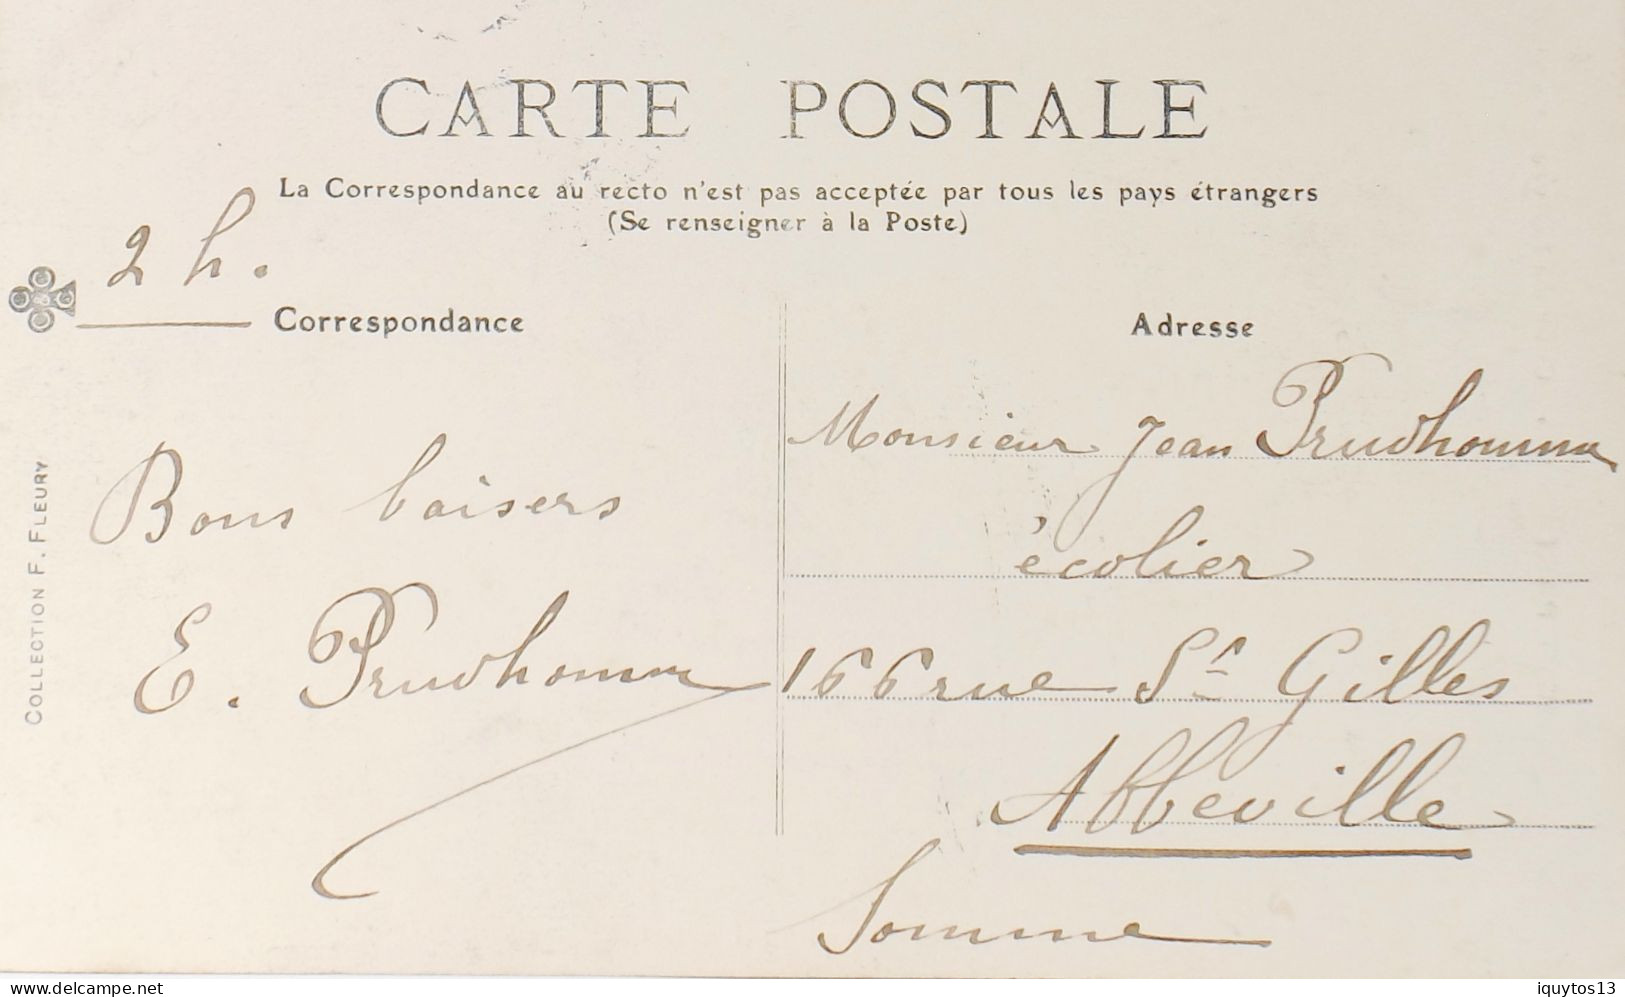 CARTE POSTALE
La Correspondance au recto n'est pas acceptée par tous les pays étrangers
(Se renseigner à la Poste)
2 h.
Correspondance
Bons baisers
E. Prudhomme
COLLECTION F. FLEURY
Adresse
Monsieur Jean Prudhomme
écolier
166 rue St Gilles
Abbeville
Somme
delcampe.net
iquytos13